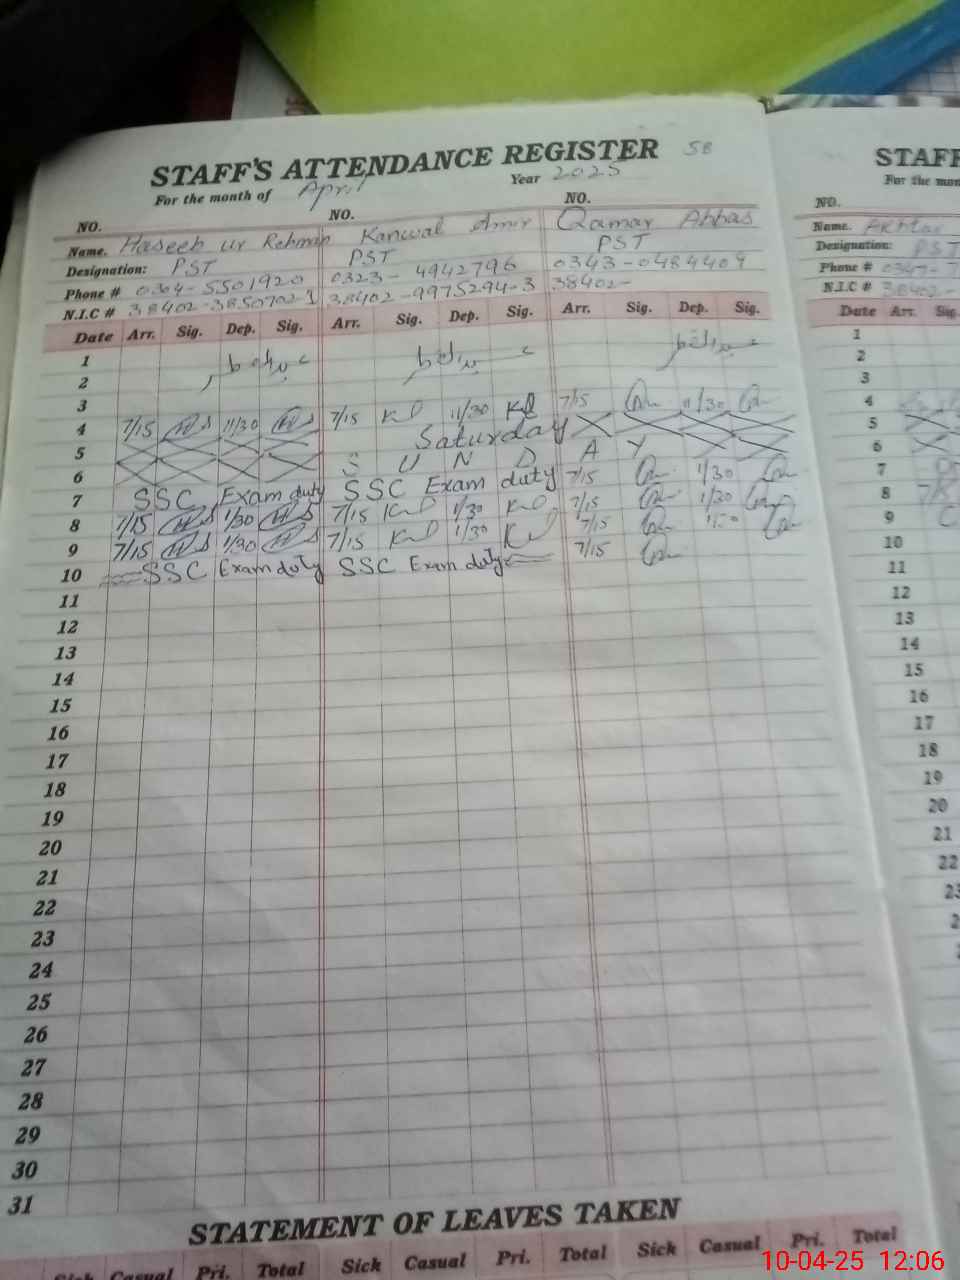 STAFF'S ATTENDANCE REGISTER 58
For the month of April Year 2025
NO. NO. NO.
Name. Haseeb ur Rehman Kanwal Amir Qamar Abbas
Designation: PST PST PST
Phone # 0304-5501920 0323-4942796 0343-0484409
N.I.C # 38402-3850702-1 38402-9975294-3 38402-
Date Arr. Sig. Dep. Sig. Arr. Sig. Dep. Sig. Arr. Sig. Dep. Sig.
1 عید الفطر عید الفطر عید الفطر
2
3
4 7/15 11/30 7/15 11/30 7/15 11/30
5 Saturday
6 S U N D A Y
7 SSC Exam duty SSC Exam duty 7/15 1/30
8 7/15 1/30 7/15 1/30 7/15 1/30
9 7/15 1/30 7/15 1/30 7/15
10 SSC Exam duty SSC Exam duty 7/15
11
12
13
14
15
16
17
18
19
20
21
22
23
24
25
26
27
28
29
30
31
STATEMENT OF LEAVES TAKEN
Sick Casual Pri. Total Sick Casual Pri. Total Sick Casual Pri. Total
STAFF
For the mon
NO.
Name. Akhtar
Designation: PST
Phone # 0347-7
N.I.C # 38402
Date Arr. Sig.
1
2
3
4
5
6
7
8
9
10
11
12
13
14
15
16
17
18
19
20
21
22
23
10-04-25 12:06